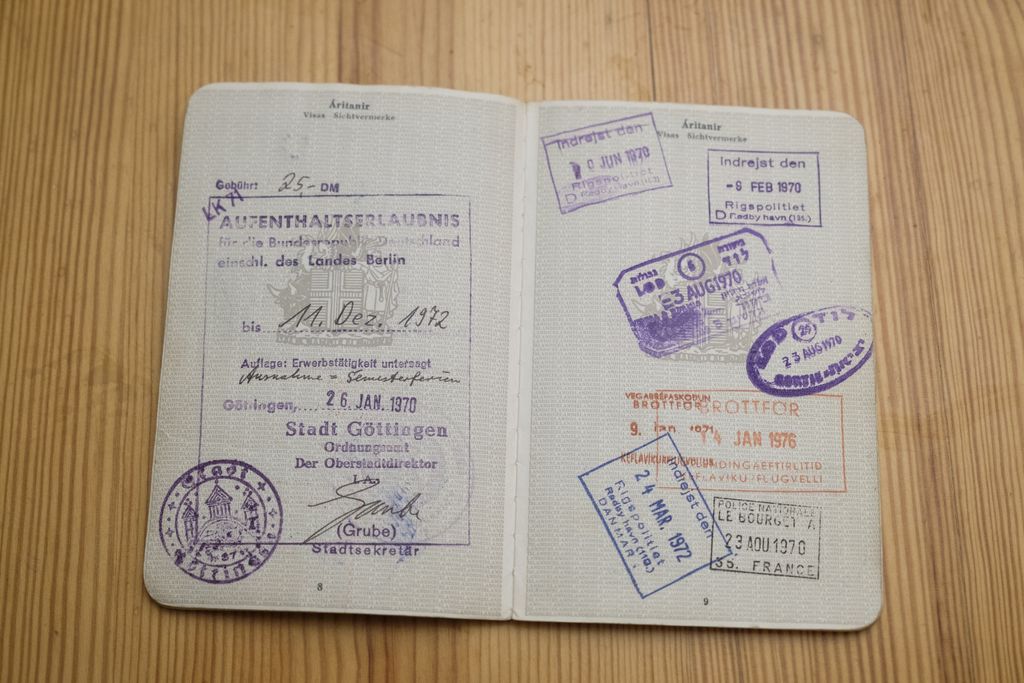 Áritanir
Visas Sichtvermerke
Gebühr: 25,- DM
KK 71
AUFENTHALTSERLAUBNIS
für die Bundesrepublik Deutschland
einschl. des Landes Berlin
bis 11. Dez. 1972
Auflage: Erwerbstätigkeit untersagt
Ausnahme = Semesterferien
Göttingen, 26. JAN. 1970
Stadt Göttingen
Ordnungsamt
Der Oberstadtdirektor
I.A.
(Grube)
Stadtsekretär
Stadt
Göttingen
8
Áritanir
Visas Sichtvermerke
Indrejst den
0 JUN 1970
Rigspolitiet
D Rødbyhavn
Indrejst den
-9 FEB 1970
Rigspolitiet
D Rødbyhavn (195.)
לוד
6
LOD
-3 AUG 1970
LOD לוד
26
23 AUG 1970
VEGABRÉFASKOÐUN
BROTTFÖR
9. Jan 1971
KEFLAVÍKURFLUGVÖLLUR
BROTTFÖR
14 JAN 1976
KEFLAVIKURFLUGVELLI
Indrejst den
24 MAR. 1972
Rigspolitiet
Rødbyhavn (119.)
DANMARK
POLICE NATIONALE
LE BOURGET A
23 AOU 1970
35. FRANCE
9